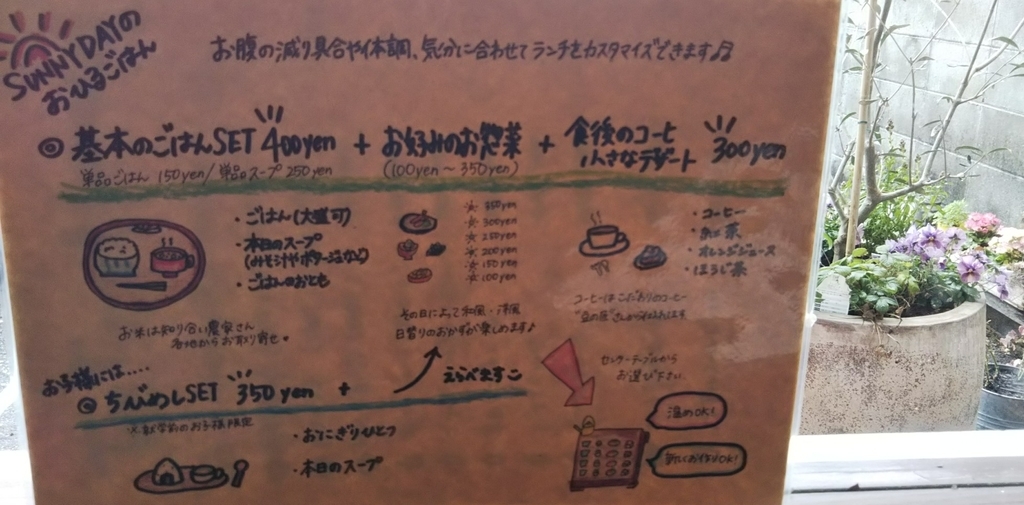 SUNNY DAYの
おひるごはん
お腹の減り具合や体調、気分に合わせてランチをカスタマイズできます♫
◎ 基本のごはんSET 400yen + お好みのお惣菜 + 食後のコーヒー 小さなデザート 300yen
単品ごはん 150yen/単品スープ 250yen
(100yen～350yen)
・ごはん(大盛可)
・本日のスープ
(みそ汁やポタージュなど)
・ごはんのおとも
お米は知り合い農家さん
各地からお取り寄せ。
350yen
300yen
250yen
200yen
150yen
100yen
その日によって和風・洋風
日替りのおかずが楽しめます♪
・コーヒー
・紅茶
・オレンジジュース
・ほうじ茶
コーヒーはこだわりのコーヒー
お子様には....
◎ ちびめしSET 350yen +
えらべます
※就学前のお子様限定
・おにぎりひとつ
・本日のスープ
センターテーブルから
お選び下さい
温めOK!